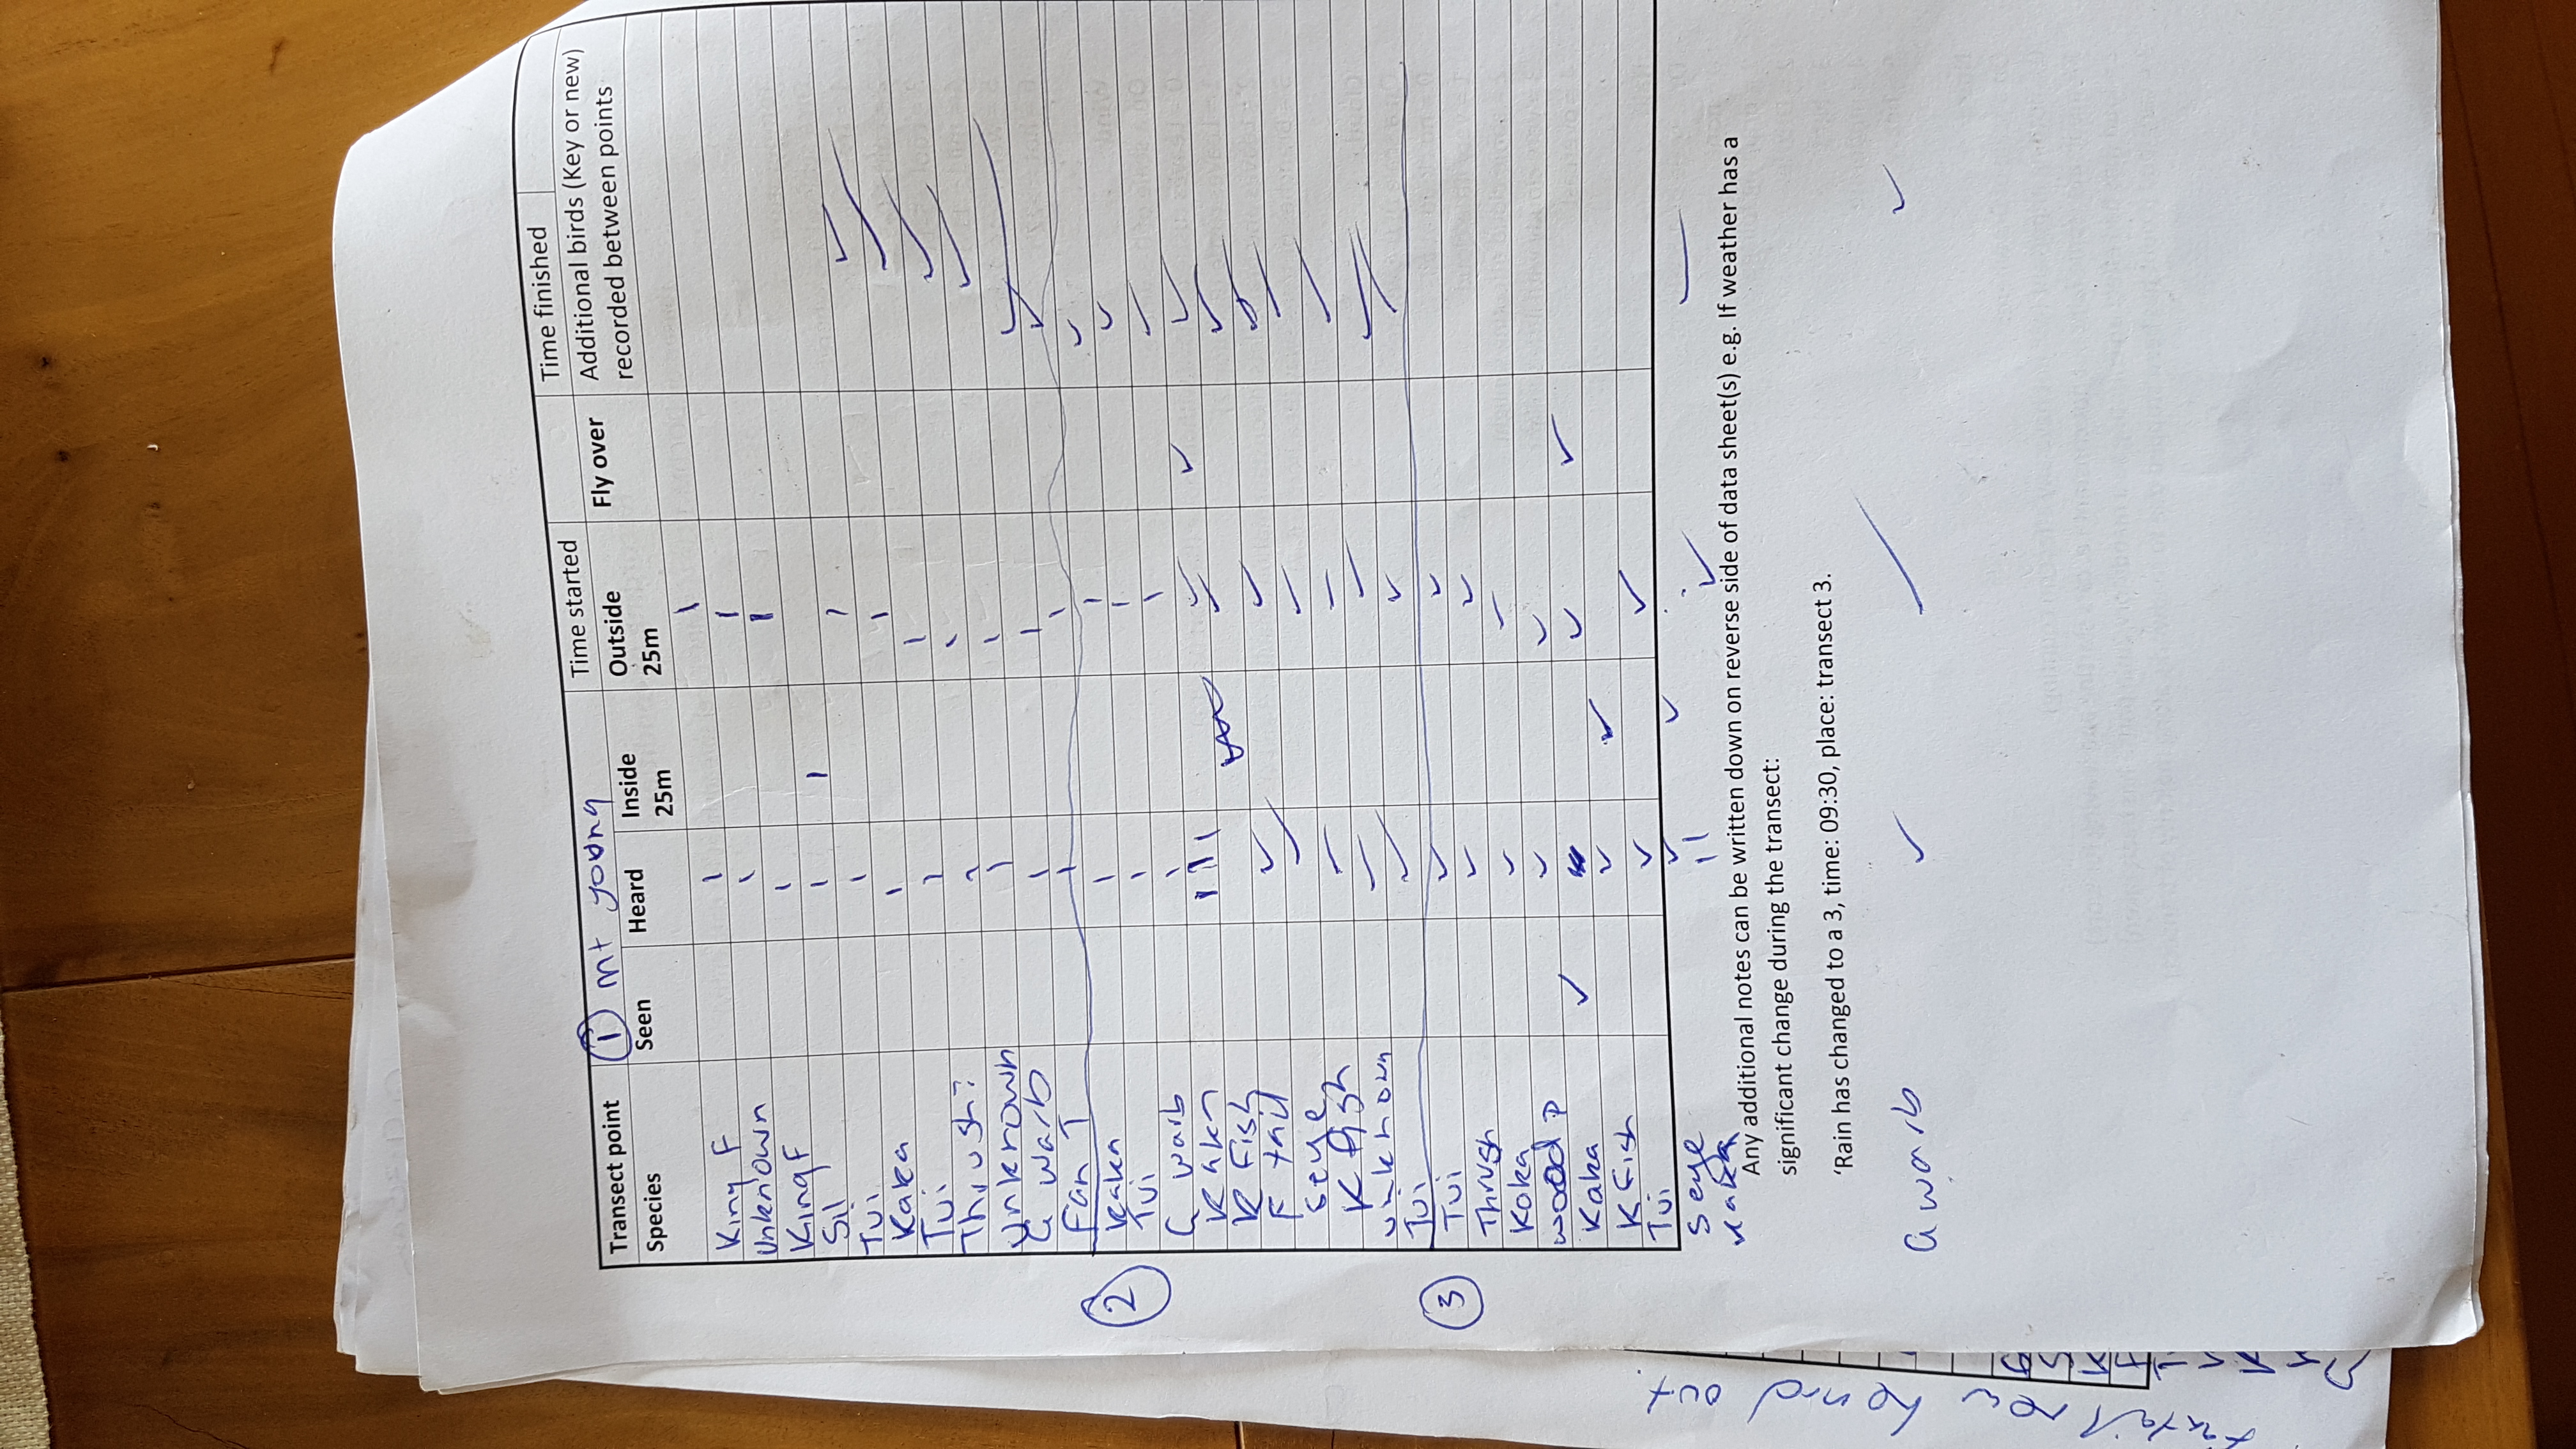 Transect point ① mt young Time started Time finished
Species Seen Heard Inside 25m Outside 25m Fly over Additional birds (Key or new) recorded between points
King F | |
Unknown | |
King F | |
Sil | |
Tui | | ✓
Kaka | | ✓
Tui | | ✓
Thrush? | | ✓
Unknown | | ✓
G warb | | ✓
Fan T | | ✓
② Kaka | | ✓
Tui | | ✓
G warb | | ✓
Kaka ||| ✓ ✓ ✓
K Fish ✓ ✓
F tail ✓ ✓ ✓
Seye ✓ ✓ ✓
K fish ✓ ✓ ✓
unknown ✓ ✓ ✓
Tui ✓ ✓ ✓
③ Tui ✓ ✓
Thrush ✓ ✓
Koka ✓ ✓
wood P ✓ ✓
Kaka ✓ ✓ ✓
K Fish ✓ ✓
Tui ✓ ✓
Seye ✓ ✓
Kaka || ✓
Any additional notes can be written down on reverse side of data sheet(s) e.g. If weather has a
significant change during the transect:
‘Rain has changed to a 3, time: 09:30, place: transect 3.
G warb ✓ ✓ ✓
new heard out.